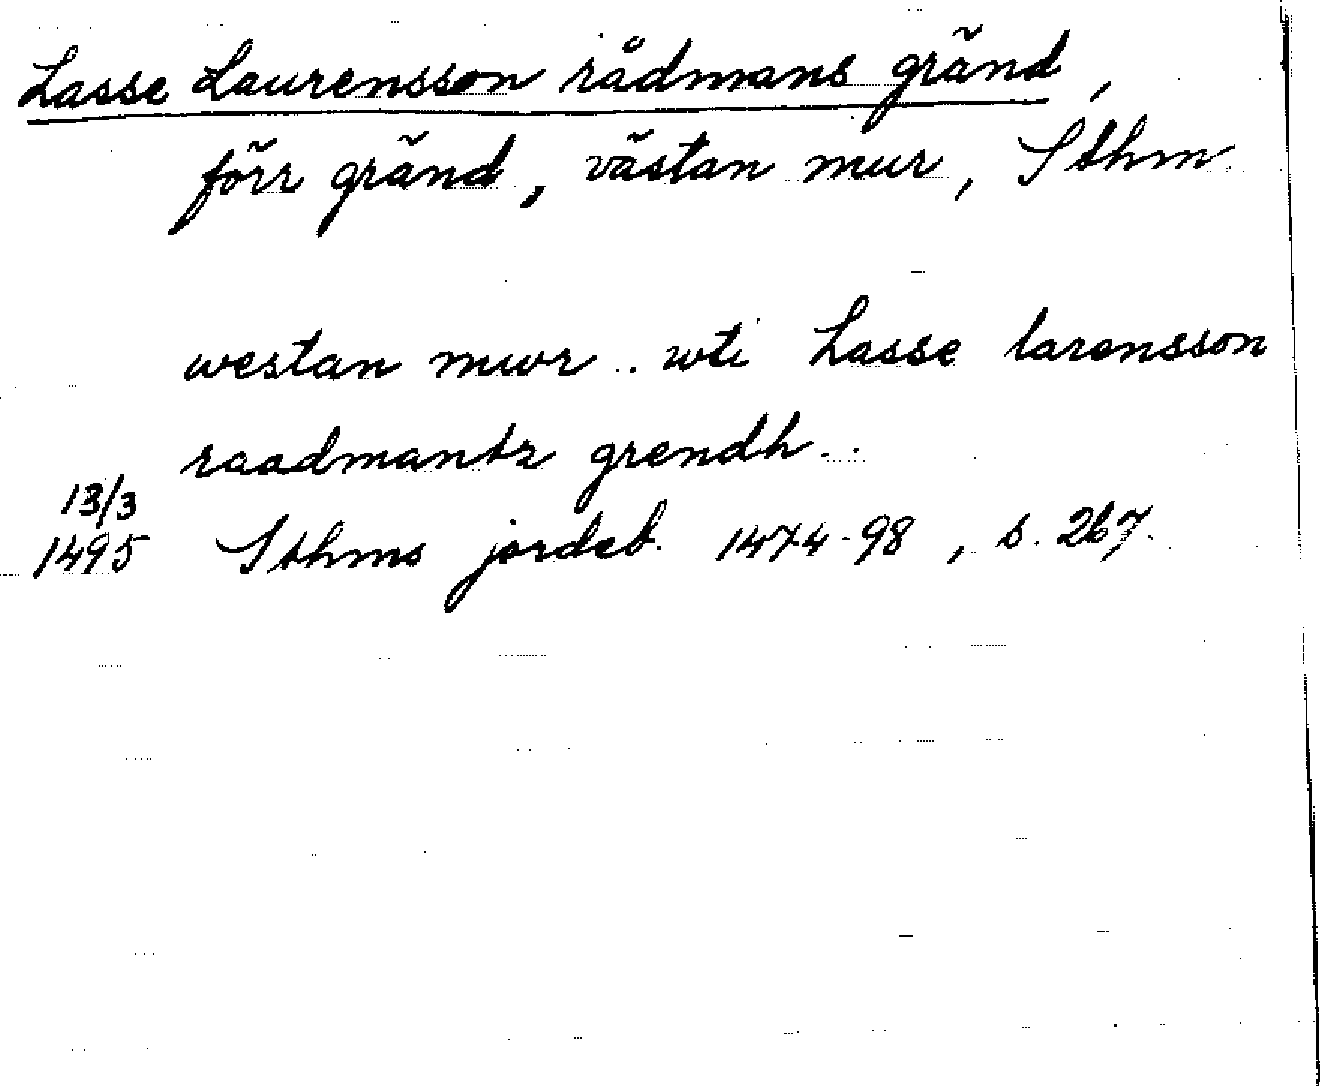 Lasse Laurensson rådmans gränd,
förr gränd, västan mur, Sthm.
westan mwr .. wti Lasse larensson
raadmantz grendh ..
13/3
1495 Sthms jordeb. 1474-98, s. 267.